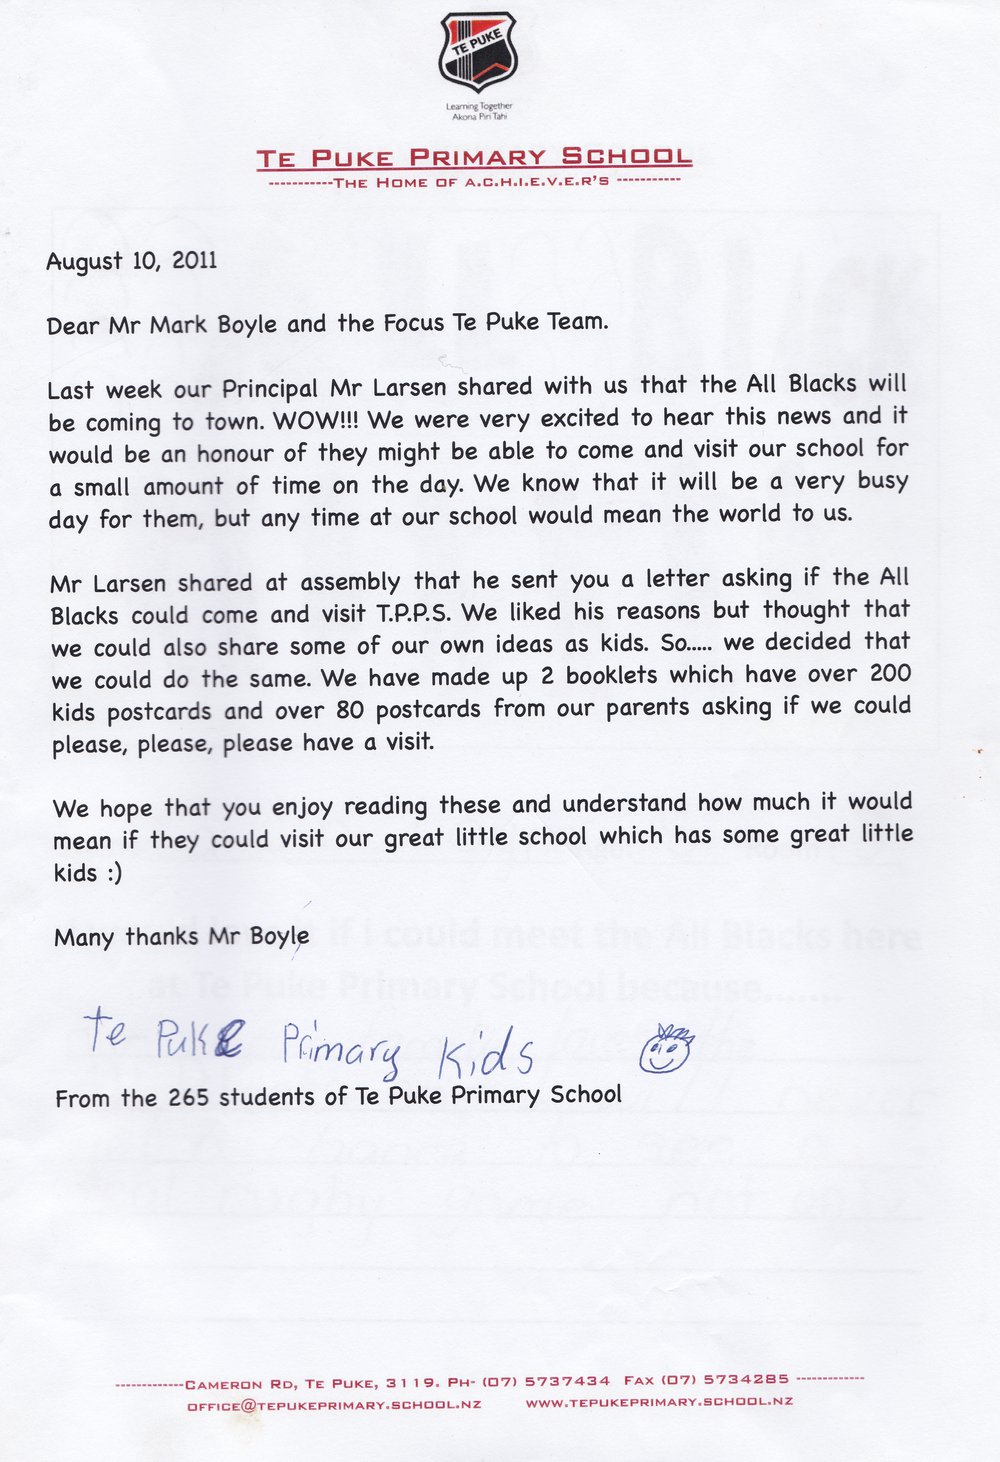 TE PUKE
Learning Together
Akona Piri Tahi
TE PUKE PRIMARY SCHOOL
-----------THE HOME OF A.C.H.I.E.V.E.R'S -----------
August 10, 2011
Dear Mr Mark Boyle and the Focus Te Puke Team.
Last week our Principal Mr Larsen shared with us that the All Blacks will
be coming to town. WOW!!! We were very excited to hear this news and it
would be an honour of they might be able to come and visit our school for
a small amount of time on the day. We know that it will be a very busy
day for them, but any time at our school would mean the world to us.
Mr Larsen shared at assembly that he sent you a letter asking if the All
Blacks could come and visit T.P.P.S. We liked his reasons but thought that
we could also share some of our own ideas as kids. So..... we decided that
we could do the same. We have made up 2 booklets which have over 200
kids postcards and over 80 postcards from our parents asking if we could
please, please, please have a visit.
We hope that you enjoy reading these and understand how much it would
mean if they could visit our great little school which has some great little
kids :)
Many thanks Mr Boyle
Te Puke Primary Kids
From the 265 students of Te Puke Primary School
------------CAMERON RD, TE PUKE, 3119. PH- (07) 5737434 FAX (07) 5734285 ------------
OFFICE@TEPUKEPRIMARY.SCHOOL.NZ WWW.TEPUKEPRIMARY.SCHOOL.NZ